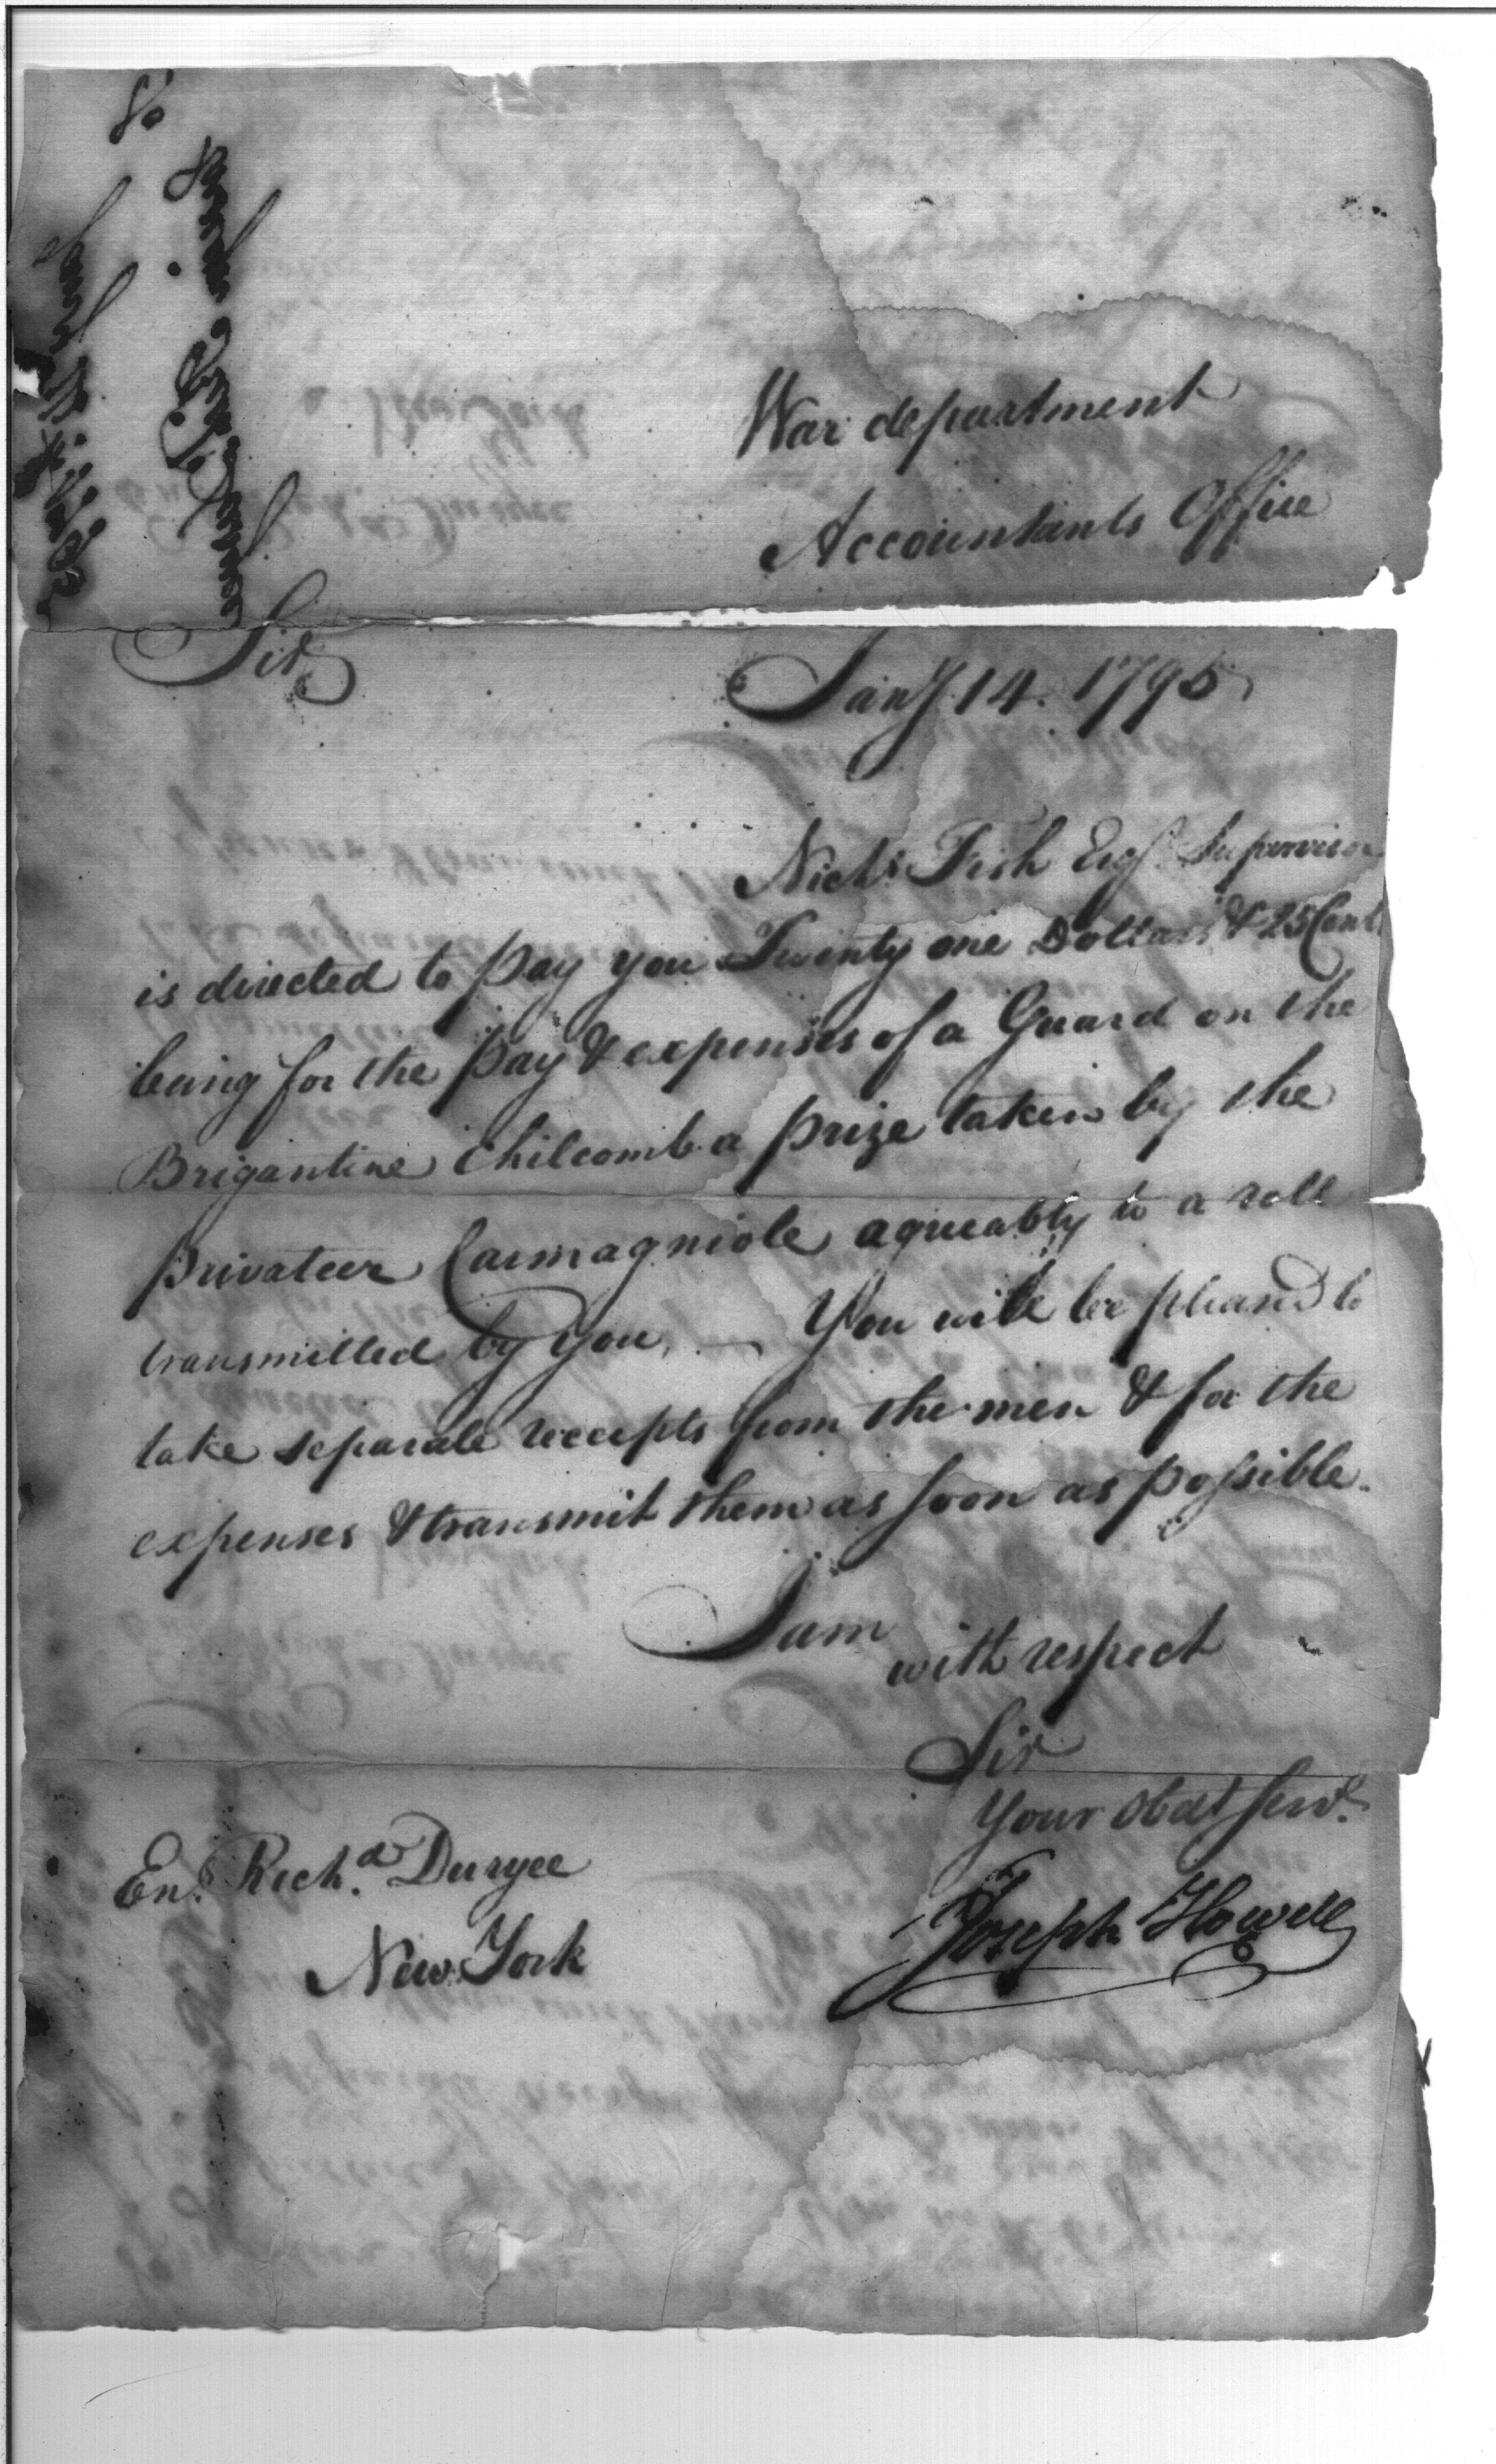 War department
Accountants Office
Sir
Jany. 14. 1795
Nichs Fish Esqr. Supervisor
is directed to pay you Twenty one Dollars & 25 Cents
being for the pay & expenses of a Guard on the
Brigantine Chilcomb a prize taken by the
privateer Carmagniole agreeably to a roll
transmitted by you, — You will be pleased to
take separate receipts from the men & for the
expenses & transmit them as soon as possible.
I am
with respect
Sir
Your Obdt Servt.
Joseph Howell
Ens. Richd. Duryee
New York